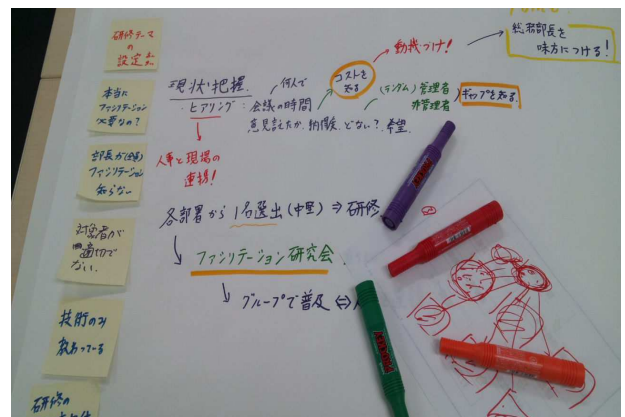 研修テーマ
の
設定
本当に
ファシリテーション
必要なの?
部長が(全員)
ファシリテーション
知らない
対象者が
適切で
ない.
技術のみ
教わっている
研修の
現状把握.
何人で
・ヒアリング:会議の時間
意見言えたか,納得度,どない?,希望.
人事と現場の
連携!
コストを
知る
動機づけ!
総務部長を
味方につける!
(ランダム)管理者
非管理者
ギャップを知る.
各部署から1名選出(中堅)⇒研修
ファシリテーション研究会.
グループで普及⇔